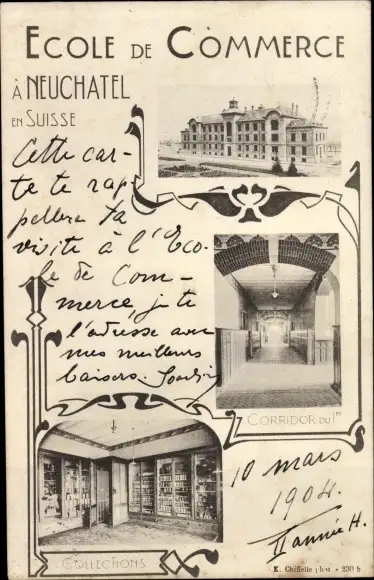 ECOLE DE COMMERCE
À NEUCHATEL
EN SUISSE
Cette car-
te te rap
pellera ta
visite à l'Eco-
le de Com-
merce, je te
l'adresse avec
mes meilleurs
baisers.
CORRIDOR DU 1er
10 mars
1904.
II année H.
COLLECTIONS
E. Chiffelle phot • 230 b